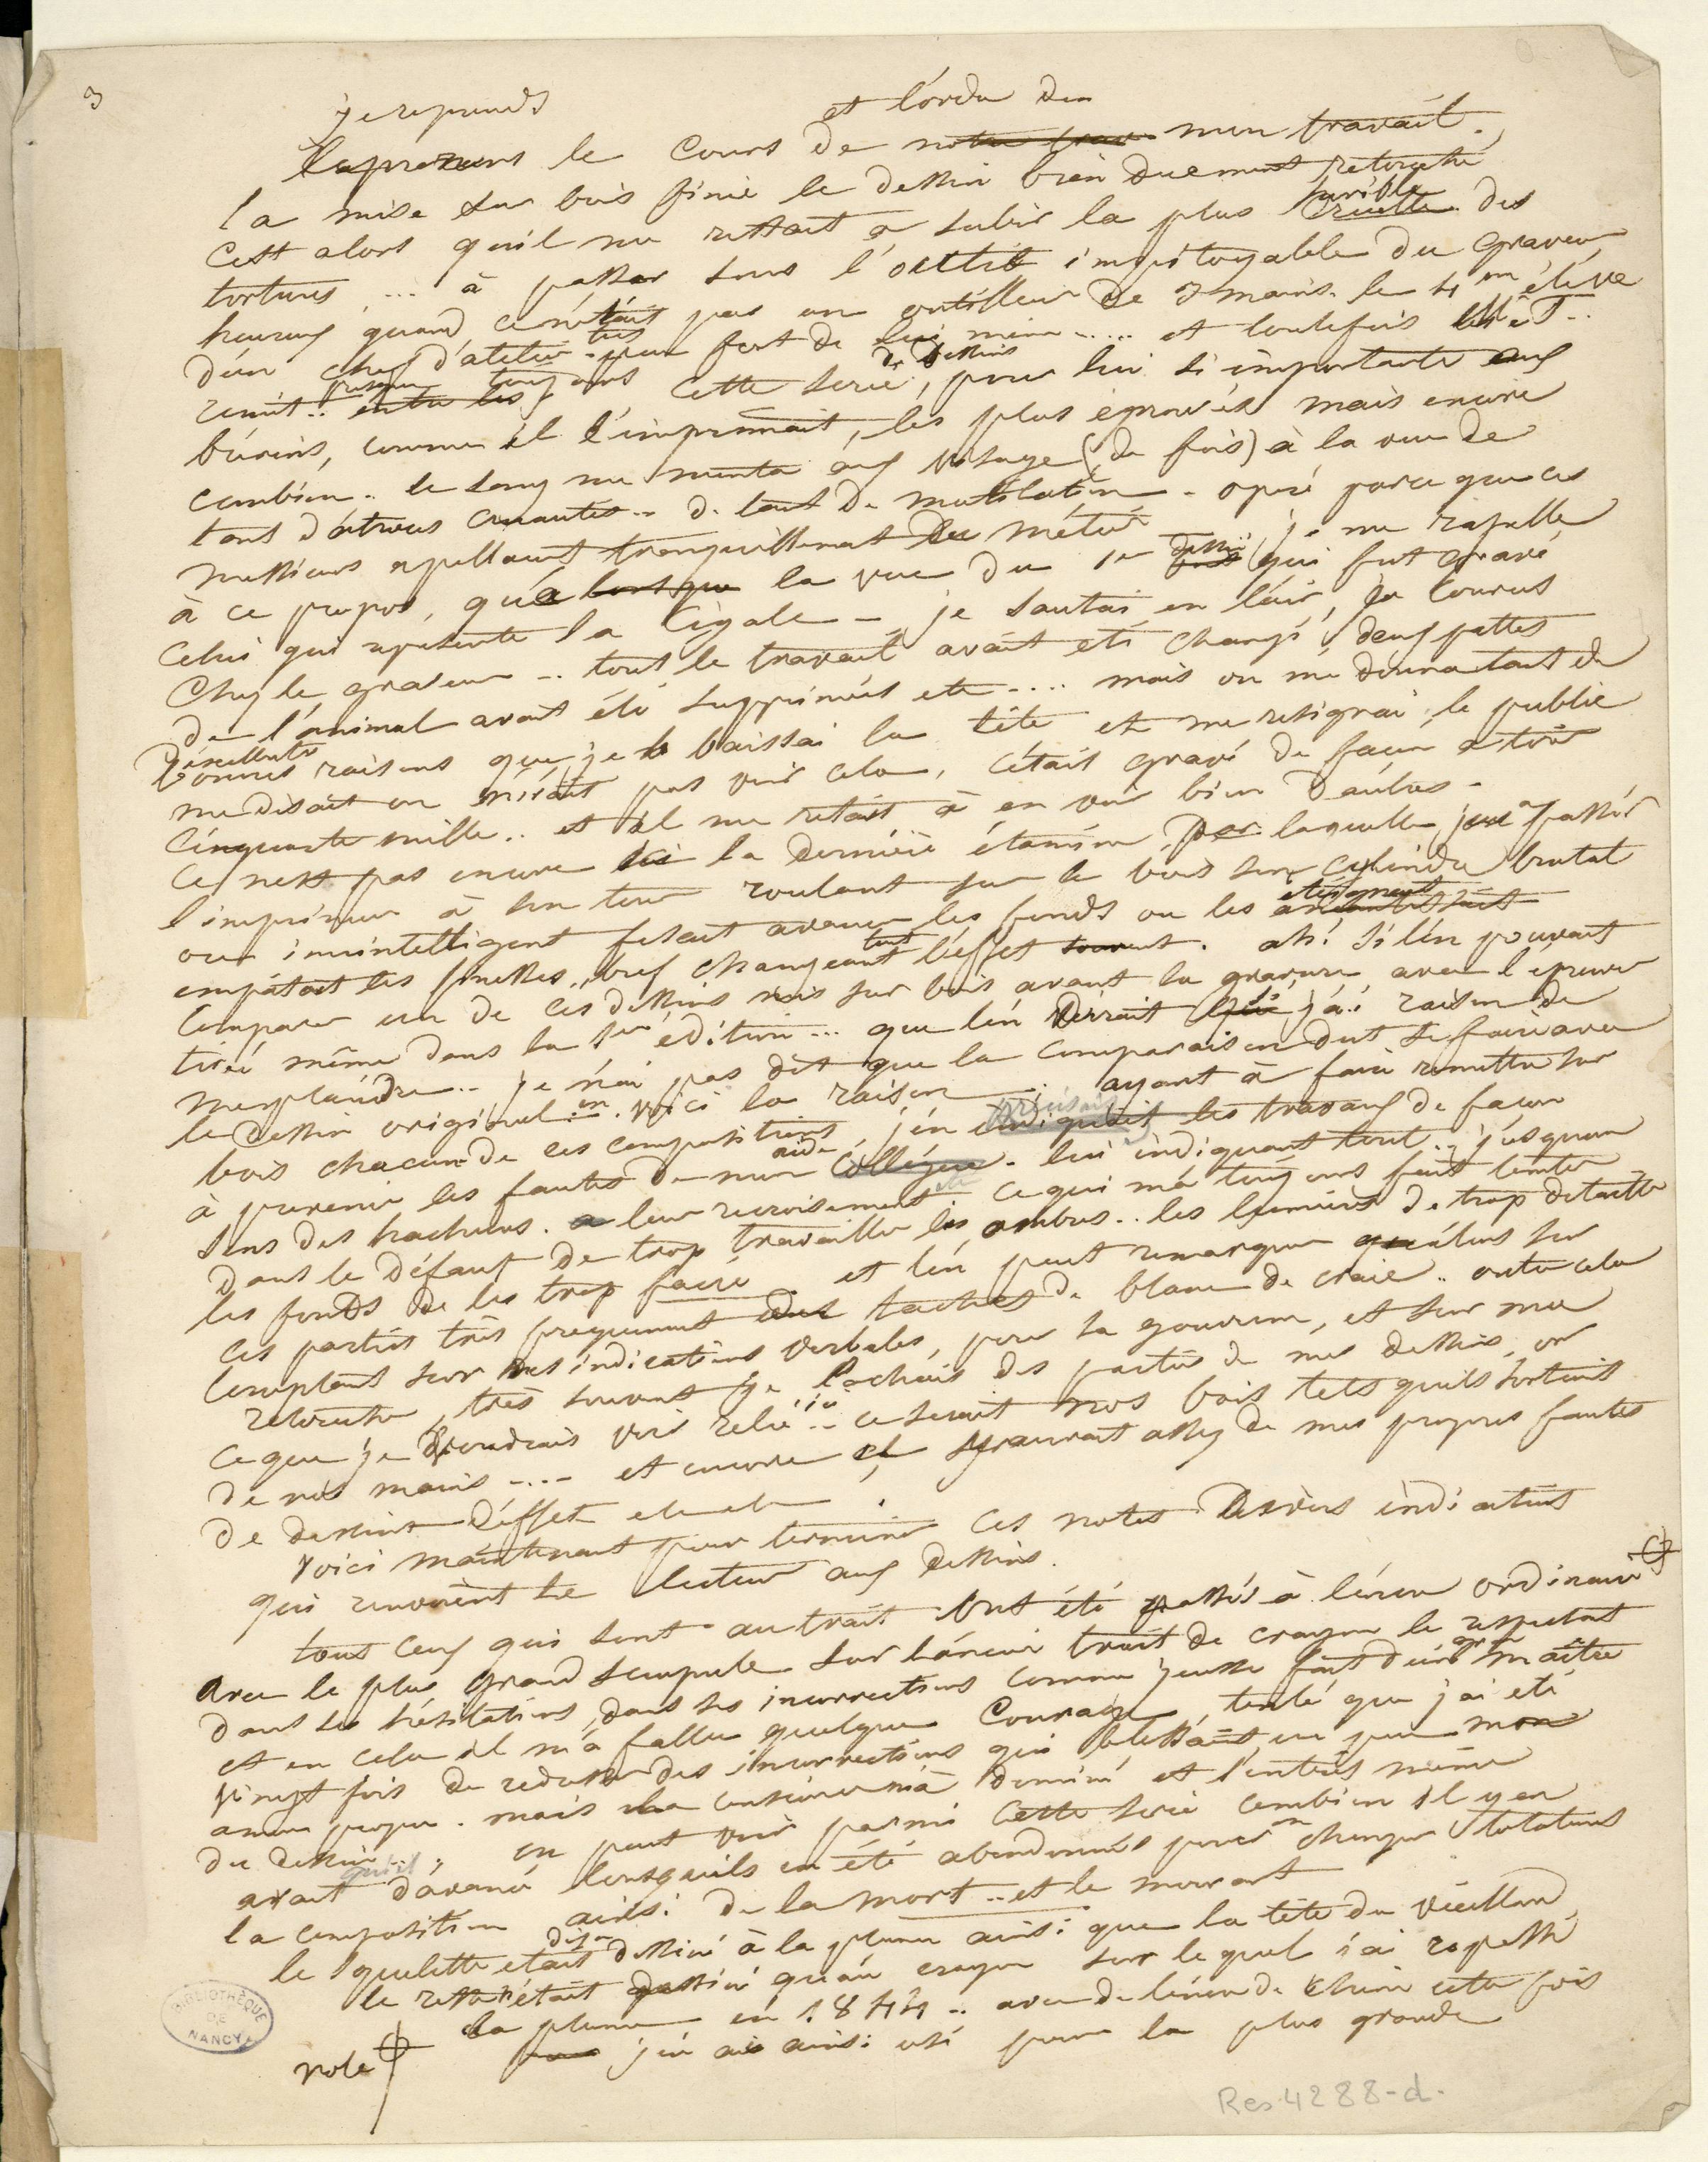 3
je reprends et l'ordre de
Reprenons le cours de notre trav mon travail.
la mise sur bois finie le dessin bien duement retouché
c'est alors qu'il me restait a subir la plus terrible cruelle des
tortures ... à passer sous l'outil impitoyable du graveur
heureux quand ce n'était pas un outilleur de 3 mains. le 4me élève
d'un chef d'atelier très peu fort de lui même ..... et toutefois
presque entre les toujours cette serie de dessins, pour lui si importante aux
burins, comme il l'imprimait, les plus éprouvés mais encore
combien .. le sang me monta aux visage (de fois) à la vue de
tant d'atroces cruautés .. de tant de mutilation - opéré parce que ces
messieurs apellaient tranquillement du métier je me rapelle
à ce propos, qu'à lorsque la vue du 1er dessin bois qui fut gravé
celui qui represente la Cigale - je sautai en l'air, je courus
chez le graveur .. tout le travail avait eté changé, deux pattes
de l'animal avait été supprimés etc .... mais on me donna tant de
d'excellentes bonnes raisons que je baissai la tête et me resignai, le public
me disait on n'irait pas voir cela, c'était gravé de façon a tirer
cinquante mille .. et il me restait à en voir bien d'autres.
Ce n'est pas encore ici la dernière étamine par laquelle j'eus a passer
l'imprimeur à son tour roulant sur le bois son cylindre brutal
ou inintelligent fesait avancer les fonds ou les éteignait anéantissait
empâtait les finesses, bref changeant tout l'effet souvent. ah! si l'on pouvait
comparer un de ces dessins mis sur bois avant la gravure avec l'épreuve
tirée même dans la 1ère édition ... que l'on verrait que si j'ai raison de
me plaindre .. je n'ai pas dit que la comparaison dut se faire avec
le dessin original .. en voici la raison : ayant à faire remettre sur
bois chacun de ces compositions j'en precisais indiquais les travaux de façon
à prevenir les fautes de mon aide collègue - lui indiquant tout .. jusqu'au
sens des hachures. a leur croisement etc ce qui m'a toujours fait tomber
dans le défaut de trop travailler les ombres .. les lumières de trop detailler
les fonds de les trop faire et l'on peut remarquer qu'alors sur
ces parties très frequemment des taches de blanc de craie .. outre cela
comptant sur mes indications verbales, pour sa gouverne, et sur ma
retouche, très souvent je lachais des parties de mes dessins, or
ce que je voudrais voir relié ici .. ce serait nos bois tels qu'ils sortaient
de nos mains .... et encore il y aurait assez de mes propres fautes
de dessins d'effet etc etc .
Voici maintenant pour terminer ces notes diverses indications
qui renvoient le lecteur aux dessins.
tous ceux qui sont au trait ont été passés à l'encre ordinaire
avec le plus grand scrupule sur l'ancien trait de crayon le respectant
dans ses hésitations, dans ses incorrections comme j'eusse fait d'un gran maître
et en cela il m'a fallu quelque courage, tenté que j'ai eté
vingt fois de redresser des incorrections qui blessaient un peu mon
amour propre . mais la conscience m'a dominé et l'interêt même
du dessin .. on peut voir parmi cette serie combien il y en
avait qu'il d'avancé lorsqu'ils on été abandonnés pour en changer totalement
la composition ainsi de la mort .. et le mourant
le squelette etait déjà dessiné à la plume ainsi que la tête du vieillard,
le reste n'était dessiné qu'au crayon sur lequel j'ai repassé
la plume en 1844 .. avec de l'encre de chine cette fois
note j'en ai ainsi usé pour la plus grande
BIBLIOTHÈQUE DE NANCY
Res. 4288-d.